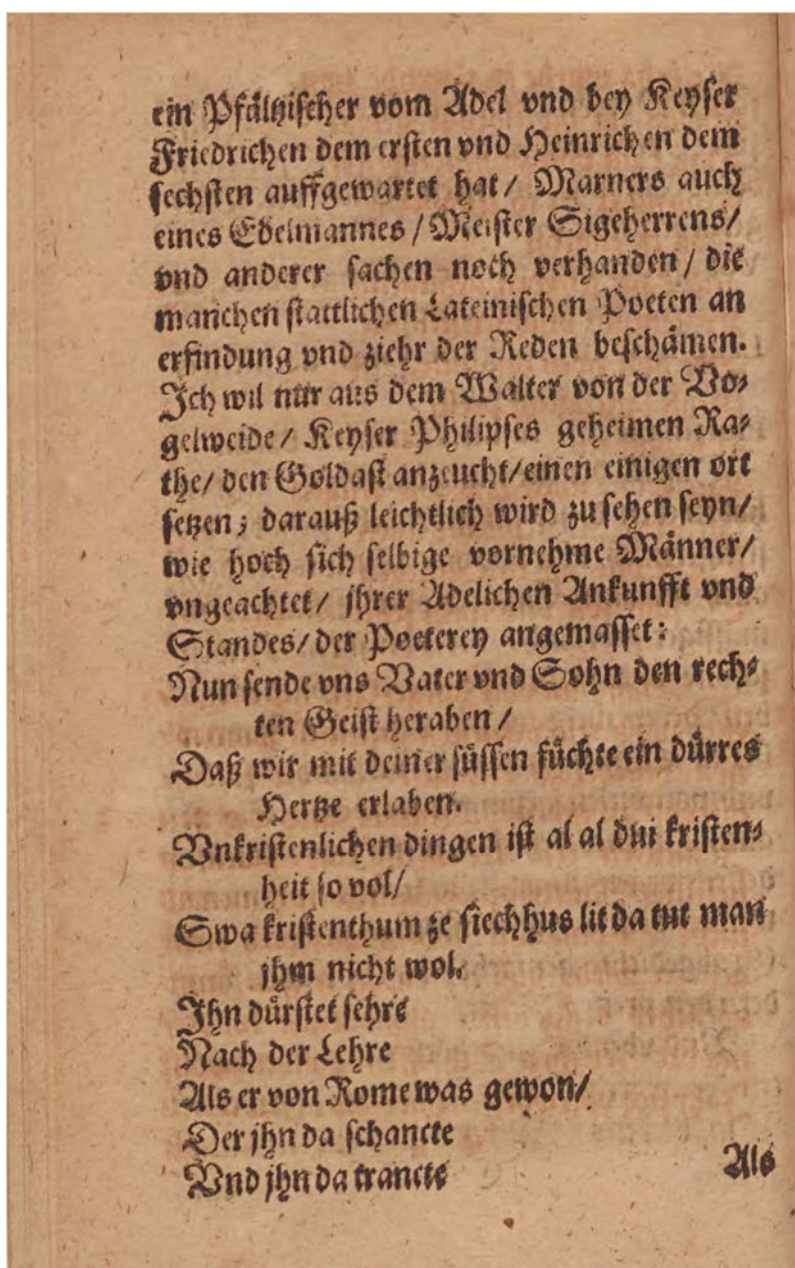 ein Pfältzischer vom Adel vnd bey Keyser
Friedrichen dem ersten vnd Heinrichen dem
sechsten auffgewartet hat / Marners auch
eines Edelmannes / Meister Sigeherrens /
vnd anderer sachen noch verhanden / die
manchen stattlichen Lateinischen Poeten an
erfindung vnd ziehr der Reden beschämen.
Ich wil nur aus dem Walter von der Vo-
gelweide / Keyser Philipses geheimen Ra-
the / den Goldast anzeucht / einen einigen ort
setzen; darauß leichtlich wird zu sehen seyn /
wie hoch sich selbige vornehme Männer /
vngeachtet / jhrer Adelichen Ankunfft vnd
Standes / der Poeterey angemasset:
Nun sende vns Vater vnd Sohn den rech-
ten Geist heraben /
Daß wir mit deiner süssen füchte ein dürres
Hertze erlaben.
Vnkristenlichen dingen ist al al dui kristen-
heit so vol /
Swa kristenthum ze siechhus lit da tut man
jhm nicht wol.
Ihn dürstet sehre
Nach der Lehre
Als er von Rome was gewon /
Der jhn da schancte
Vnd jhn da trancte
Als